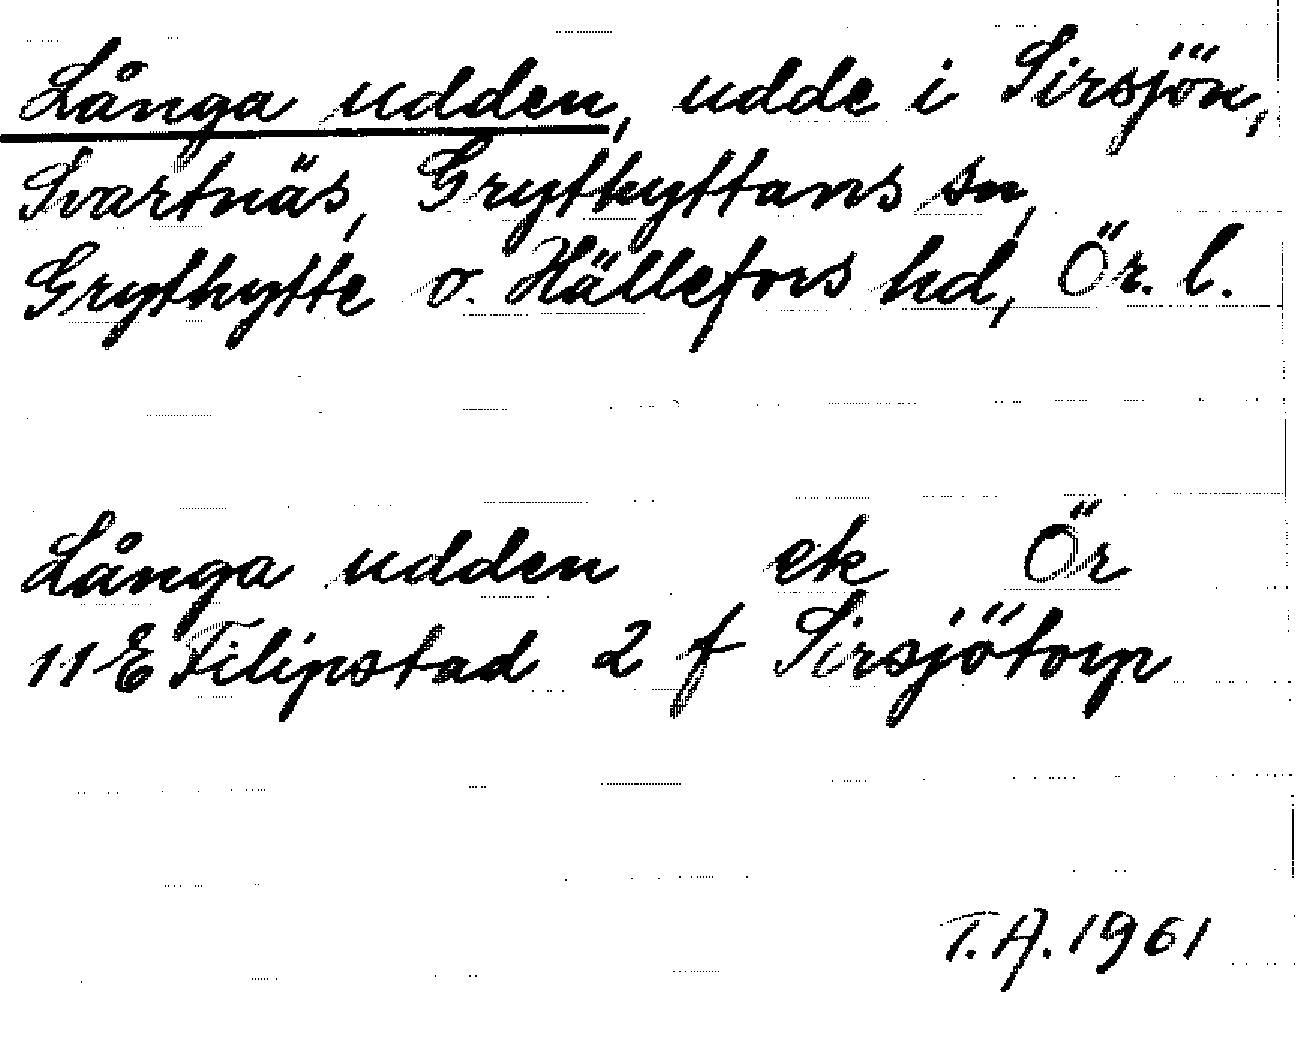 Långa udden, udde i Sirsjön,
Svartnäs, Grythyttans sn,
Grythytte o. Hällefors hd, Ör. l.
Långa udden ek Ör
11 E Filipstad 2 f Sirsjötorp
T.A. 1961